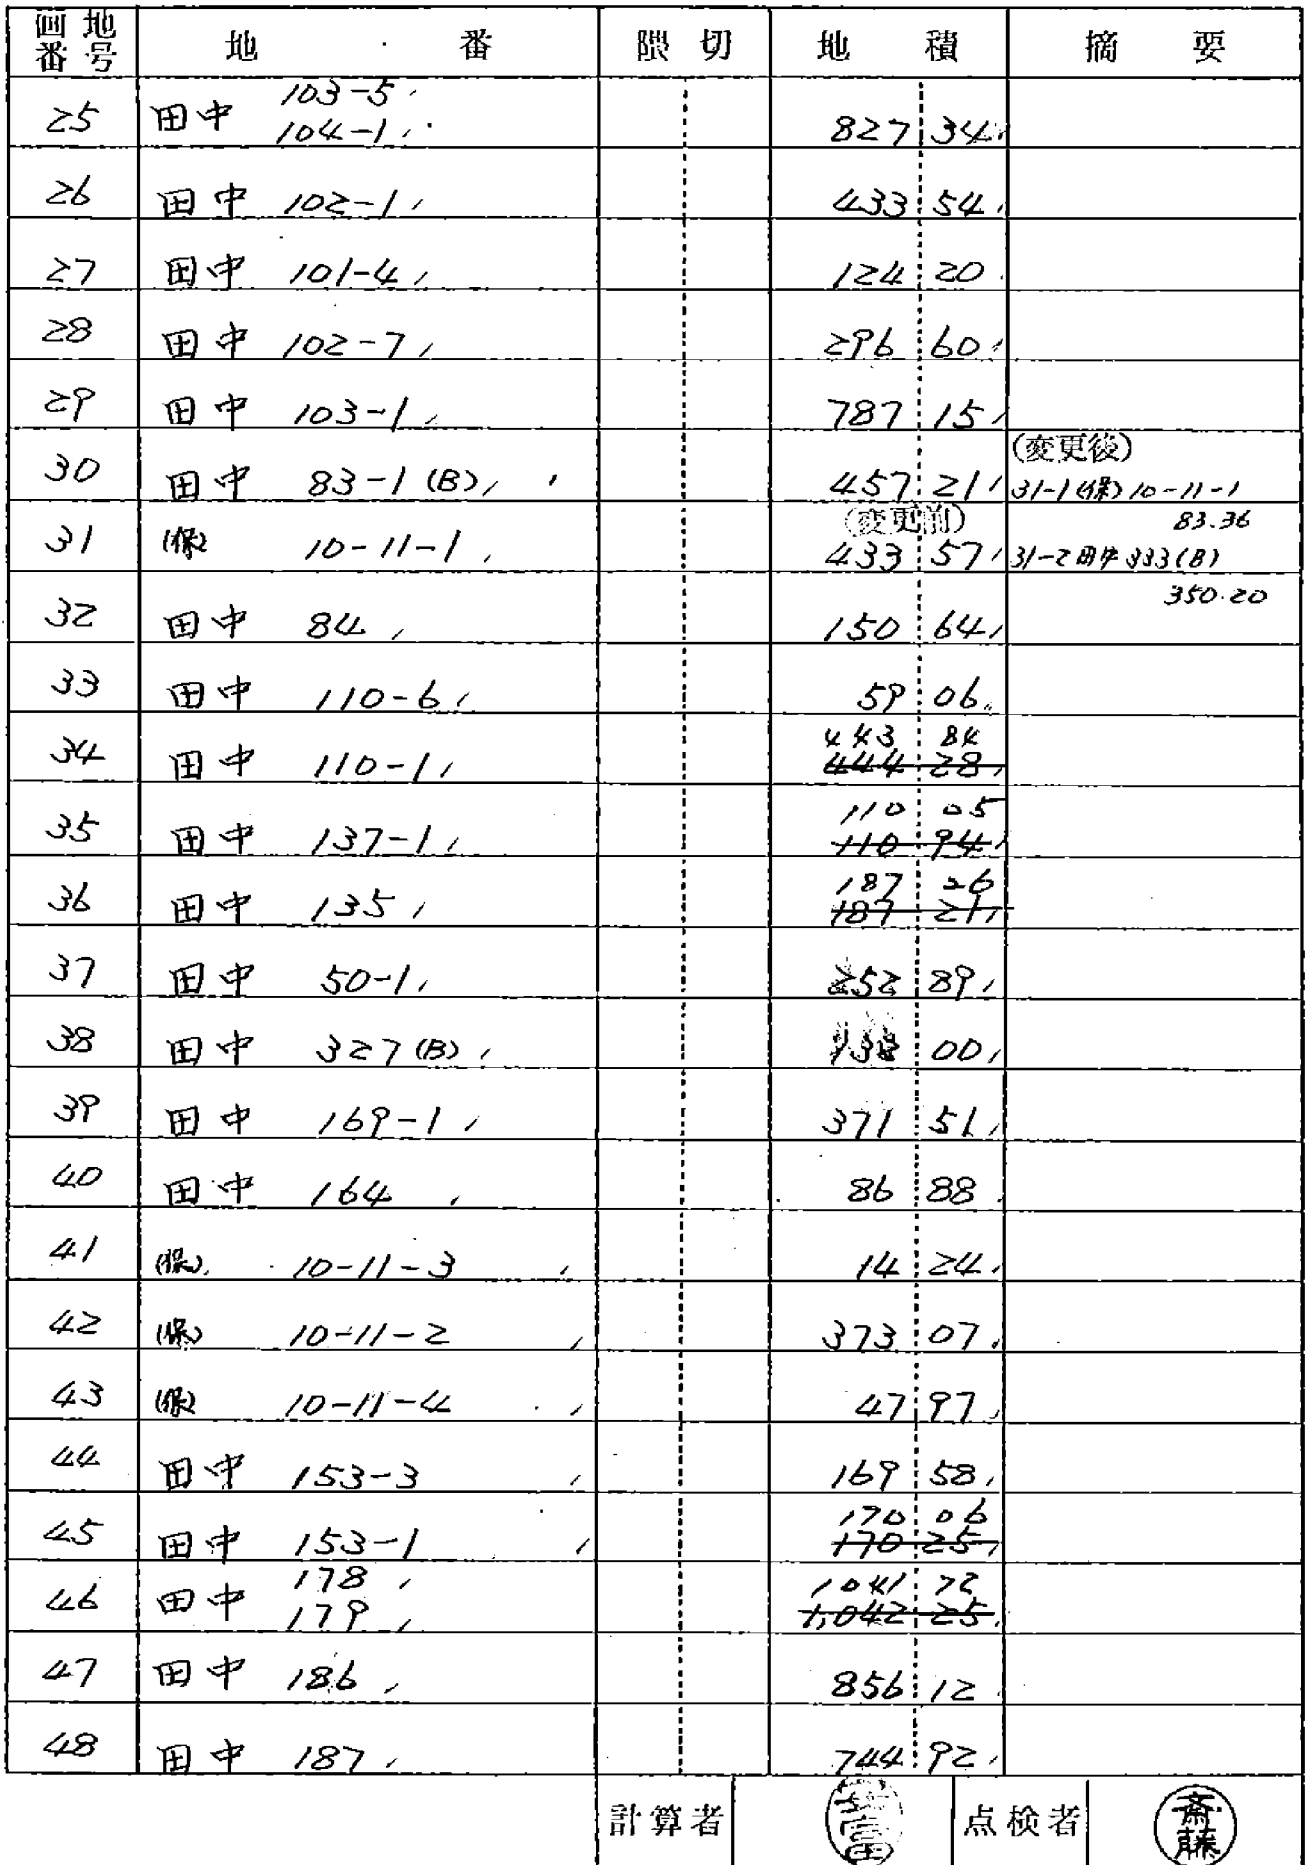 画地番号 地番 隈切 地積 摘要
25 田中 103-5 104-1 827 34
26 田中 102-1 433 54
27 田中 101-4 124 20
28 田中 102-7 296 60
29 田中 103-1 787 15
30 田中 83-1(B) 457 21 (変更後) 31-1(保)10-11-1
31 (保) 10-11-1 (変更前) 433 57 83.36 31-2田中333(B)
32 田中 84 150 64 350.20
33 田中 110-6 59 06
34 田中 110-1 443 84 444 28
35 田中 137-1 110 05 110 94
36 田中 135 187 26 187 21
37 田中 50-1 252 89
38 田中 327(B) 00
39 田中 169-1 371 51
40 田中 164 86 88
41 (保) 10-11-3 14 24
42 (保) 10-11-2 373 07
43 (保) 10-11-4 47 97
44 田中 153-3 169 58
45 田中 153-1 170 06 170 25
46 田中 178 179 1041 72 1,042 25
47 田中 186 856 12
48 田中 187 744 92
計算者 点検者 斎藤